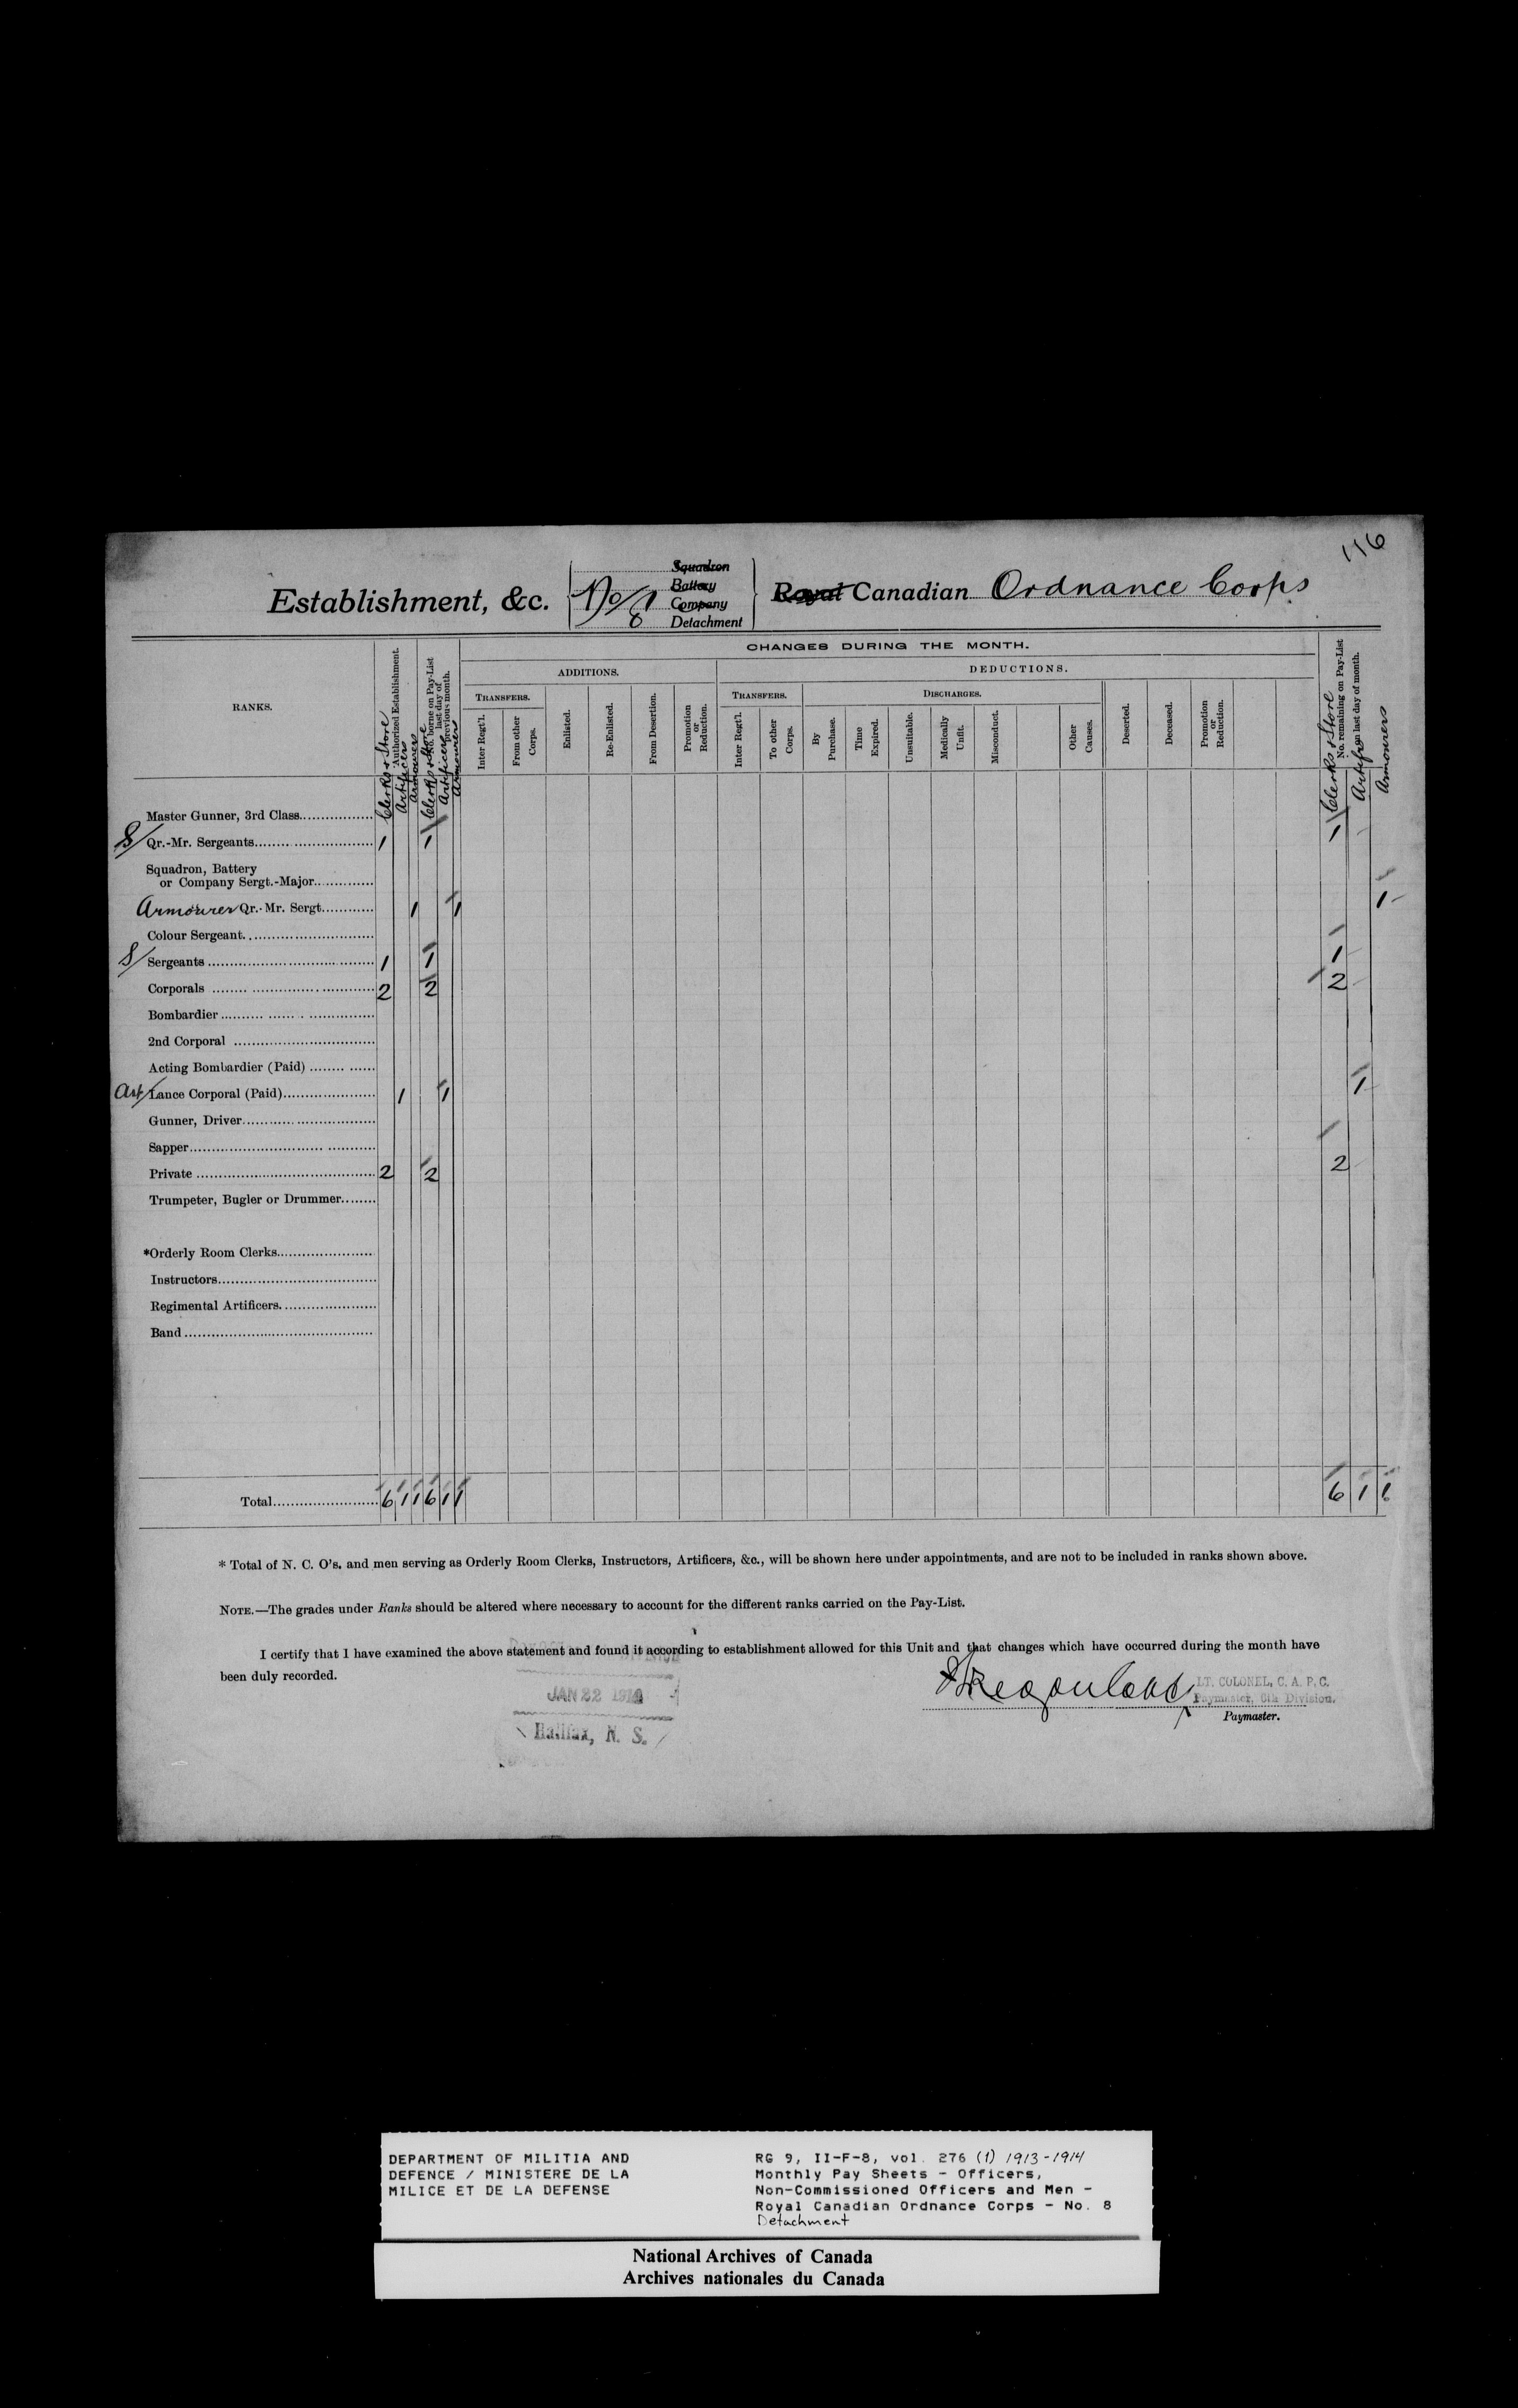 116
Establishment, &c. No/8 Squadron Battery Company Detachment Royal Canadian Ordnance Corps
RANKS.
Authorized Establishment.
Clerks & Store
Artificers
Armourers
No. borne on Pay-List last day of previous month.
Clerks & Store
Artificers
Armourers
CHANGES DURING THE MONTH.
ADDITIONS.
DEDUCTIONS.
TRANSFERS.
Inter Regt'l.
From other Corps.
Enlisted.
Re-Enlisted.
From Desertion.
Promotion or Reduction.
TRANSFERS.
Inter Regt'l.
To other Corps.
DISCHARGES.
By Purchase.
Time Expired.
Unsuitable.
Medically Unfit.
Misconduct.
Other Causes.
Deserted.
Deceased.
Promotion or Reduction.
No. remaining on Pay-List on last day of month.
Clerks & Store
Artifrs
Armourers
Master Gunner, 3rd Class
S/ Qr.-Mr. Sergeants 1 1 1
Squadron, Battery
or Company Sergt.-Major
Armourer Qr.-Mr. Sergt. 1 1 1
Colour Sergeant
S/ Sergeants 1 1 1
Corporals 2 2 2
Bombardier
2nd Corporal
Acting Bombardier (Paid)
Art/ Lance Corporal (Paid) 1 1 1
Gunner, Driver
Sapper
Private 2 2 2
Trumpeter, Bugler or Drummer
*Orderly Room Clerks
Instructors
Regimental Artificers
Band
Total 6 1 1 6 1 1 6 1 1
* Total of N. C. O's. and men serving as Orderly Room Clerks, Instructors, Artificers, &c., will be shown here under appointments, and are not to be included in ranks shown above.
NOTE.—The grades under Ranks should be altered where necessary to account for the different ranks carried on the Pay-List.
I certify that I have examined the above statement and found it according to establishment allowed for this Unit and that changes which have occurred during the month have
been duly recorded.
JAN 22 1914
Halifax, N. S.
LT. COLONEL, C. A. P. C.
Paymaster, 6th Division.
Paymaster.
DEPARTMENT OF MILITIA AND
DEFENCE / MINISTERE DE LA
MILICE ET DE LA DEFENSE
RG 9, II-F-8, vol. 276 (1) 1913-1914
Monthly Pay Sheets - Officers,
Non-Commissioned Officers and Men -
Royal Canadian Ordnance Corps - No. 8
Detachment
National Archives of Canada
Archives nationales du Canada